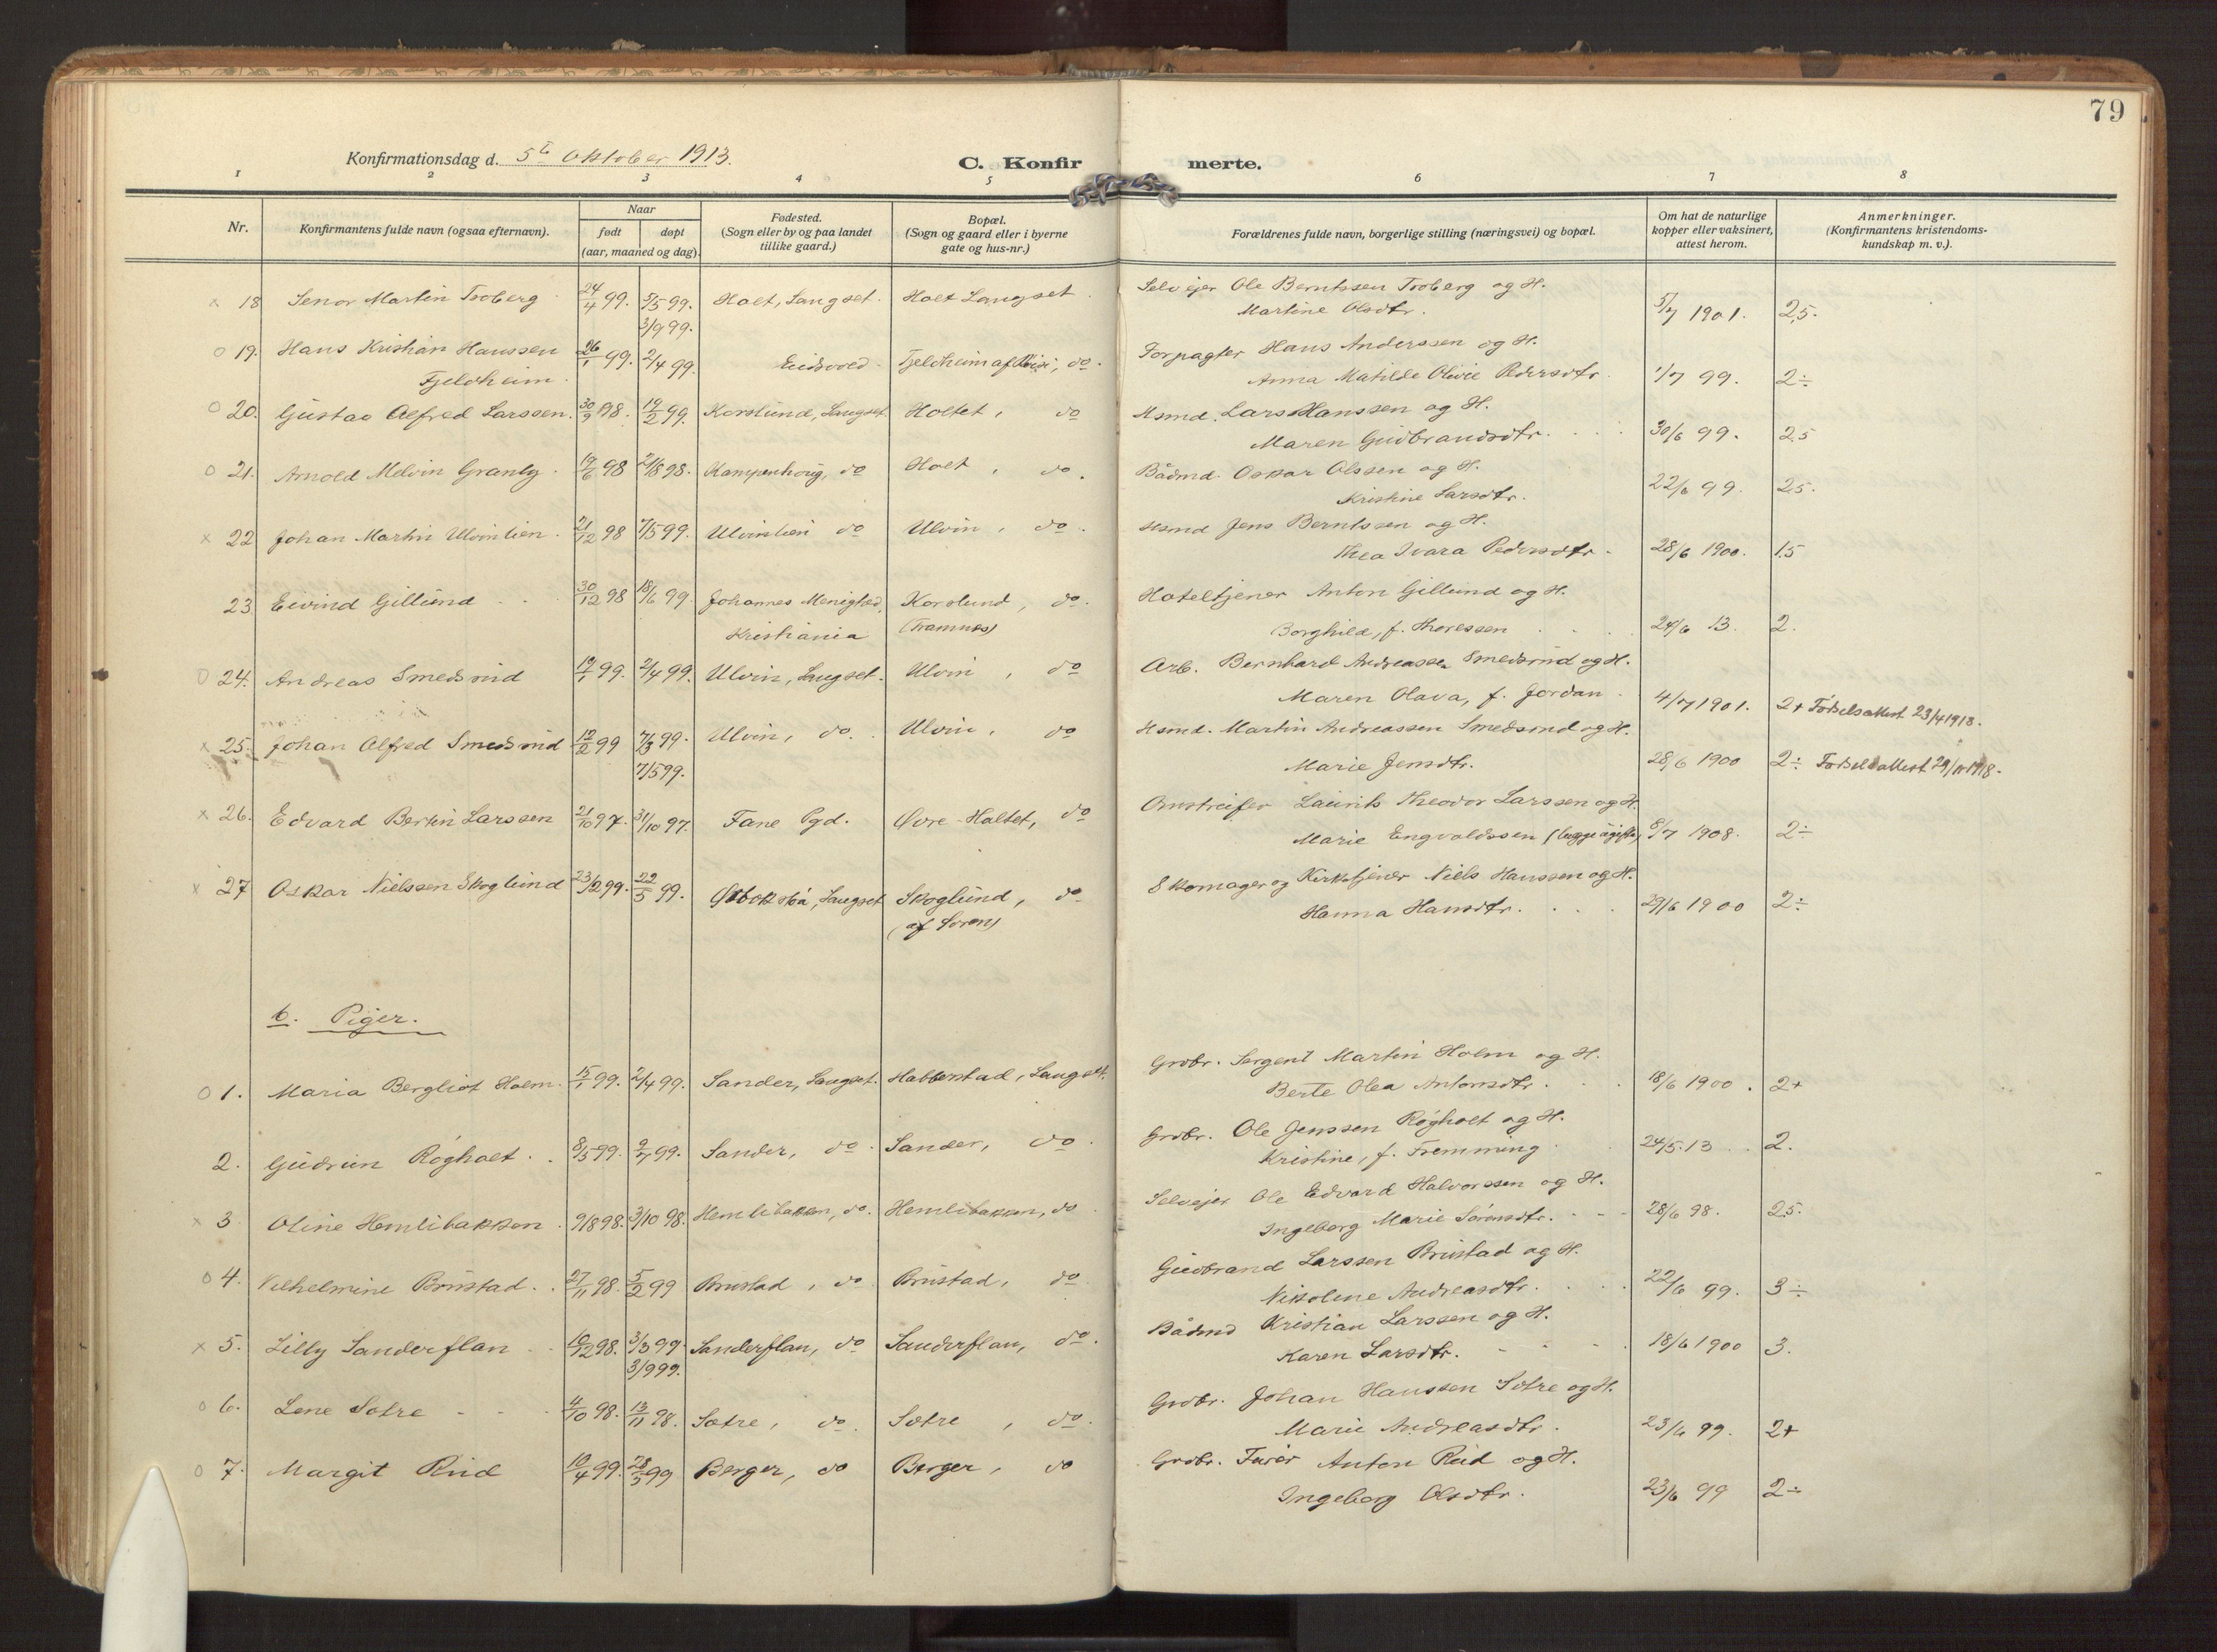 79
Konfirmationsdag d. 5te Oktober 1913.
C. Konfir merte.
1 2 3 4 5 6 7 8
Nr.
Konfirmantens fulde navn (ogsaa efternavn).
Naar
født døpt
(aar, maaned og dag).
Fødested.
(Sogn eller by og paa landet
tillike gaard.)
Bopæl.
(Sogn og gaard eller i byerne
gate og hus-nr.)
Forældrenes fulde navn, borgerlige stilling (næringsvei) og bopæl.
Om hat de naturlige
kopper eller vaksinert,
attest herom.
Anmerkninger.
(Konfirmantens kristendoms-
kundskap m. v.).
Selvejer Ole Berntssen Troberg og H.
x 18 Senor Martin Troberg 24/4 99. 5/5 99. Holt, Langset. Holt Langset
Martine Olsdtr. 5/7 1901. 2,5.
3/9 99.
o 19. Hans Kristian Hanssen 26/1 99. 2/4 99. Eidsvold. Fjeldheim af, do. Forpagter Hans Anderssen og H.
Fjeldheim. Anna Matilde Olivie Pedersdtr. 1/7 99. 2÷
o 20. Gustav Alfred Larssen. 30/9 98. 19/2 99. Korslund, Langset. Holtet, do Hsmd. Lars Hanssen og H.
Maren Gudbrandsdtr. 30/6 99. 2,5
o 21. Arnold Melvin Granly. 19/6 98 21/8 98. Kampenhoug, do Holt, do. Bådmd. Oskar Olssen og H.
Kristine Larsdtr. 22/6 99. 2,5.
x 22 Johan Martin Ulvinlien. 21/12 98 7/5 99. Ulvinlien do Ulvin, do. Hsmd Jens Berntssen og H.
Thea Ivara Pedersdtr. 28/6 1900. 1,5
23 Eivind Gillund 30/12 98 18/6 99 Johannes Menighed, Korslund, do. Hoteltjener Anton Gillund og H.
Kristiania (Tramnes) Borghild, f. Thoressen 24/6 13. 2.
o 24. Andreas Smedsrud 19/1 99. 2/4 99. Ulvin, Langset. Ulvin, do Arb. Bernhard Andreassen Smedsrud og H.
Maren Olava, f. Jordan 4/7 1901. 2+ Fødselsattest 23/4 1918.
x 25. Johan Alfred Smedsrud 12/2 99 7/3 99. Ulvin, do. Ulvin, do Hsmd. Martin Andreassen Smedsrud og H.
7/5 99. Marie Jensdtr. 28/6 1900 2÷ Fødselsattest 29/10 1918.
x 26. Edvard Bertin Larssen 21/10 97. 31/10 97. Fane Pgd. Øvre-Holtet, do Omstreifer Laurits Theodor Larssen og H.
Marie Engvaldssen (begge ugifte) 8/7 1908. 2÷
x 27 Oskar Nielssen Skoglund 23/2 99. 22/5 99. , Langset Skoglund, do Skomager og Kirketjener Niels Hanssen og H.
(af ) Hanna Hansdtr. 29/6 1900 2÷
b. Piger.
o 1. Maria Bergliot Holm. 15/1 99. 2/4 99. Sander, Langset. Habberstad, Langset. Grdbr. Sergent Martin Holm og H.
Berte Olea Antonsdtr. 18/6 1900. 2+
2. Gudrun Røgholt. 8/5 99. 9/7 99. Sander, do. Sander, do. Grdbr. Ole Jenssen Røgholt og H.
Kristine, f. Fremming 24/5.13. 2.
x 3 Oline Hemlibakken. 9/8 98. 3/10 98. Hemlibakken, do. Hemlibakken, do Selvejer Ole Edvard Halvorssen og H.
Ingeborg Marie Sørensdtr. 28/6 98. 2,5.
o 4. Vilhelmine Brustad. 27/11 98. 5/2 99 Brustad, do Brustad, do Gudbrand Larssen Brustad og H.
Nikoline Andreasdtr. 22/6 99. 3÷
x 5. Lilly Sanderflan 10/12 98. 3/3 99 Sanderflan, do Sanderflan, do. Bådmd Kristian Larssen og H.
3/9 99. Karen Larsdtr. 18/6 1900 3.
o 6. Lene Sætre 4/10 98. 13/11 98. Sætre, do. Sætre, do. Grdbr. Johan Hanssen Sætre og H.
Marie Andreasdtr. 23/6 99. 2+
o 7. Margit Rud 10/4 99. 28/5 99 Berger, do Berger, do Grdbr. Furér Anton Rud og H.
Ingeborg Olsdtr. 23/6 99 2÷